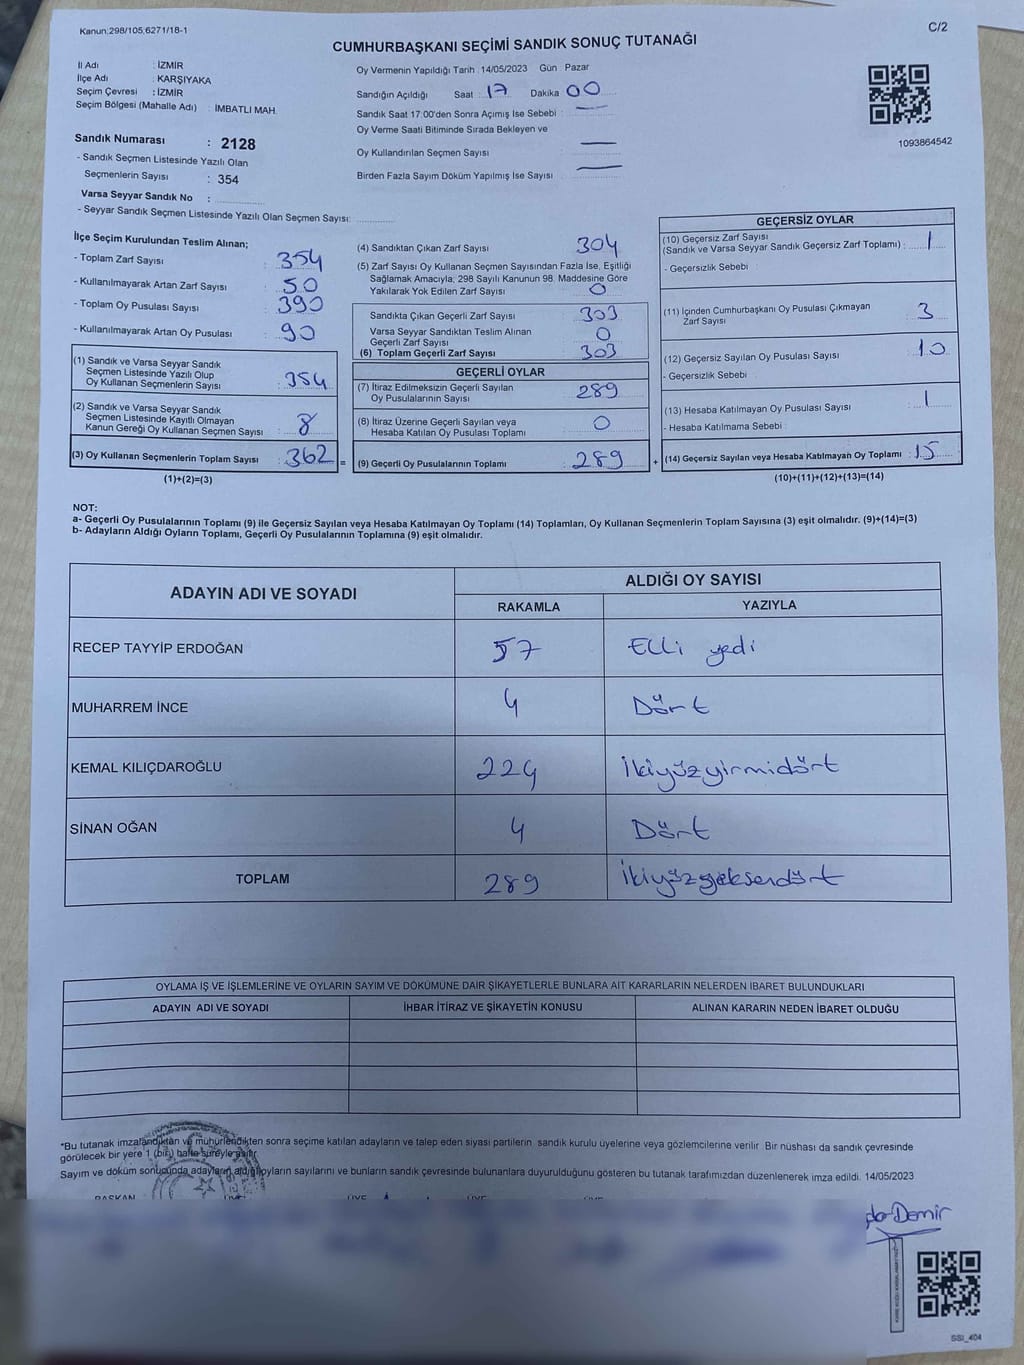 Kanun:298/105,6271/18-1
C/2
CUMHURBAŞKANI SEÇİMİ SANDIK SONUÇ TUTANAĞI
İl Adı : İZMİR
İlçe Adı : KARŞIYAKA
Seçim Çevresi : İZMİR
Seçim Bölgesi (Mahalle Adı) : İMBATLI MAH.
Sandık Numarası : 2128
- Sandık Seçmen Listesinde Yazılı Olan
Seçmenlerin Sayısı : 354
Varsa Seyyar Sandık No :
- Seyyar Sandık Seçmen Listesinde Yazılı Olan Seçmen Sayısı:
Oy Vermenin Yapıldığı Tarih :14/05/2023 Gün Pazar
Sandığın Açıldığı Saat : 17 Dakika 00
Sandık Saat 17:00'den Sonra Açımış İse Sebebi : —
Oy Verme Saati Bitiminde Sırada Bekleyen ve
Oy Kullandırılan Seçmen Sayısı —
Birden Fazla Sayım Döküm Yapılmış İse Sayısı : —
1093864542
İlçe Seçim Kurulundan Teslim Alınan;
- Toplam Zarf Sayısı : 354
- Kullanılmayarak Artan Zarf Sayısı : 50
- Toplam Oy Pusulası Sayısı : 390
- Kullanılmayarak Artan Oy Pusulası : 90
(1) Sandık ve Varsa Seyyar Sandık
Seçmen Listesinde Yazılı Olup
Oy Kullanan Seçmenlerin Sayısı : 354
(2) Sandık ve Varsa Seyyar Sandık
Seçmen Listesinde Kayıtlı Olmayan
Kanun Gereği Oy Kullanan Seçmen Sayısı : 8
(3) Oy Kullanan Seçmenlerin Toplam Sayısı : 362 =
(1)+(2)=(3)
(4) Sandıktan Çıkan Zarf Sayısı 304
(5) Zarf Sayısı Oy Kullanan Seçmen Sayısından Fazla İse, Eşitliği
Sağlamak Amacıyla, 298 Sayılı Kanunun 98. Maddesine Göre
Yakılarak Yok Edilen Zarf Sayısı : 0
Sandıkta Çıkan Geçerli Zarf Sayısı : 303
Varsa Seyyar Sandıktan Teslim Alınan
Geçerli Zarf Sayısı : 0
(6) Toplam Geçerli Zarf Sayısı : 303
GEÇERLİ OYLAR
(7) İtiraz Edilmeksizin Geçerli Sayılan
Oy Pusulalarının Sayısı : 289
(8) İtiraz Üzerine Geçerli Sayılan veya
Hesaba Katılan Oy Pusulası Toplamı : 0
(9) Geçerli Oy Pusulalarının Toplamı : 289 +
GEÇERSİZ OYLAR
(10) Geçersiz Zarf Sayısı
(Sandık ve Varsa Seyyar Sandık Geçersiz Zarf Toplamı) : 1
- Geçersizlik Sebebi :
(11) İçinden Cumhurbaşkanı Oy Pusulası Çıkmayan
Zarf Sayısı : 3
(12) Geçersiz Sayılan Oy Pusulası Sayısı : 10
- Geçersizlik Sebebi :
(13) Hesaba Katılmayan Oy Pusulası Sayısı : 1
- Hesaba Katılmama Sebebi :
(14) Geçersiz Sayılan veya Hesaba Katılmayan Oy Toplamı : 15
(10)+(11)+(12)+(13)=(14)
NOT:
a- Geçerli Oy Pusulalarının Toplamı (9) ile Geçersiz Sayılan veya Hesaba Katılmayan Oy Toplamı (14) Toplamları, Oy Kullanan Seçmenlerin Toplam Sayısına (3) eşit olmalıdır. (9)+(14)=(3)
b- Adayların Aldığı Oyların Toplamı, Geçerli Oy Pusulalarının Toplamına (9) eşit olmalıdır.
ADAYIN ADI VE SOYADI
ALDIĞI OY SAYISI
RAKAMLA YAZIYLA
RECEP TAYYİP ERDOĞAN 57 Elli yedi
MUHARREM İNCE 4 Dört
KEMAL KILIÇDAROĞLU 224 İkiyüzyirmidört
SİNAN OĞAN 4 Dört
TOPLAM 289 İkiyüzseksendört
OYLAMA İŞ VE İŞLEMLERİNE VE OYLARIN SAYIM VE DÖKÜMÜNE DAİR ŞİKAYETLERLE BUNLARA AİT KARARLARIN NELERDEN İBARET BULUNDUKLARI
ADAYIN ADI VE SOYADI İHBAR İTİRAZ VE ŞİKAYETİN KONUSU ALINAN KARARIN NEDEN İBARET OLDUĞU
*Bu tutanak imzalandıktan ve mühürlendikten sonra seçime katılan adayların ve talep eden siyasi partilerin sandık kurulu üyelerine veya gözlemcilerine verilir Bir nüshası da sandık çevresinde
görülecek bir yere 1 (bir) hafta süreyle asılır.
Sayım ve döküm sonucunda adayların aldığı oyların sayılarını ve bunların sandık çevresinde bulunanlara duyurulduğunu gösteren bu tutanak tarafımızdan düzenlenerek imza edildi. 14/05/2023
BAŞKAN ÜYE ÜYE ÜYE ÜYE
Demir
SSI_404